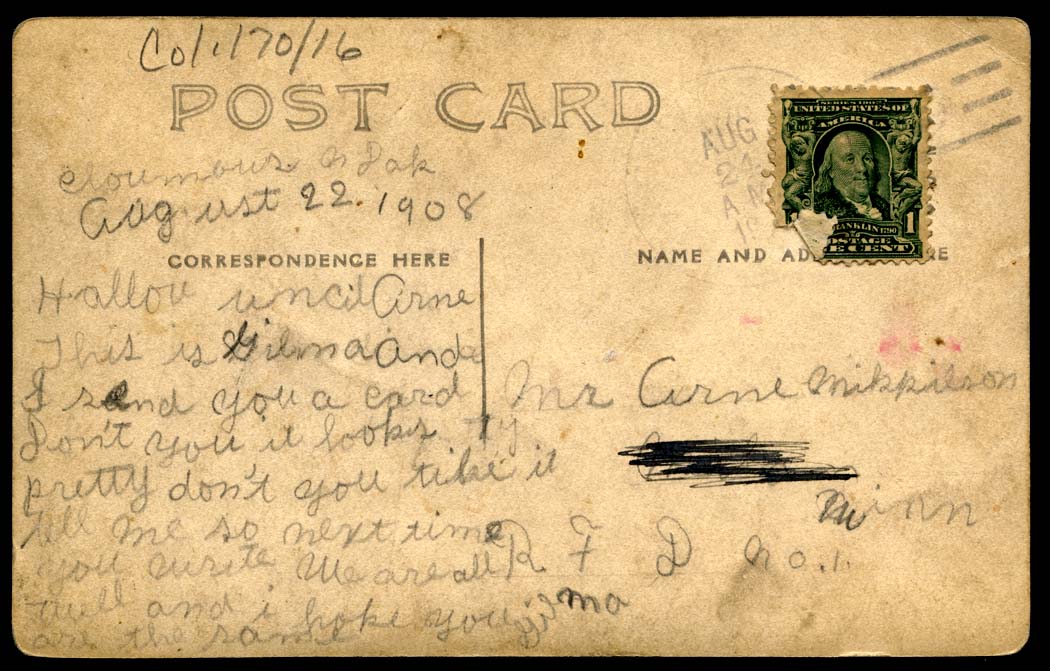 Col.170/16
POST CARD
AUG
24
A M
SERIES 1902
UNITED STATES OF
AMERICA
FRANKLIN 1790
POSTAGE
1
cloumbus N Dak
August 22. 1908
CORRESPONDENCE HERE
NAME AND AD RE
Hallou uncil Arne
This is Gilma and
I send you a card
Don't you it looks
pretty don't you like it
tell me so next time
you write We are all
well and i hope you
are the same
Gilma
Mr Arne Mikkelson
Minn
R F D No. 1.